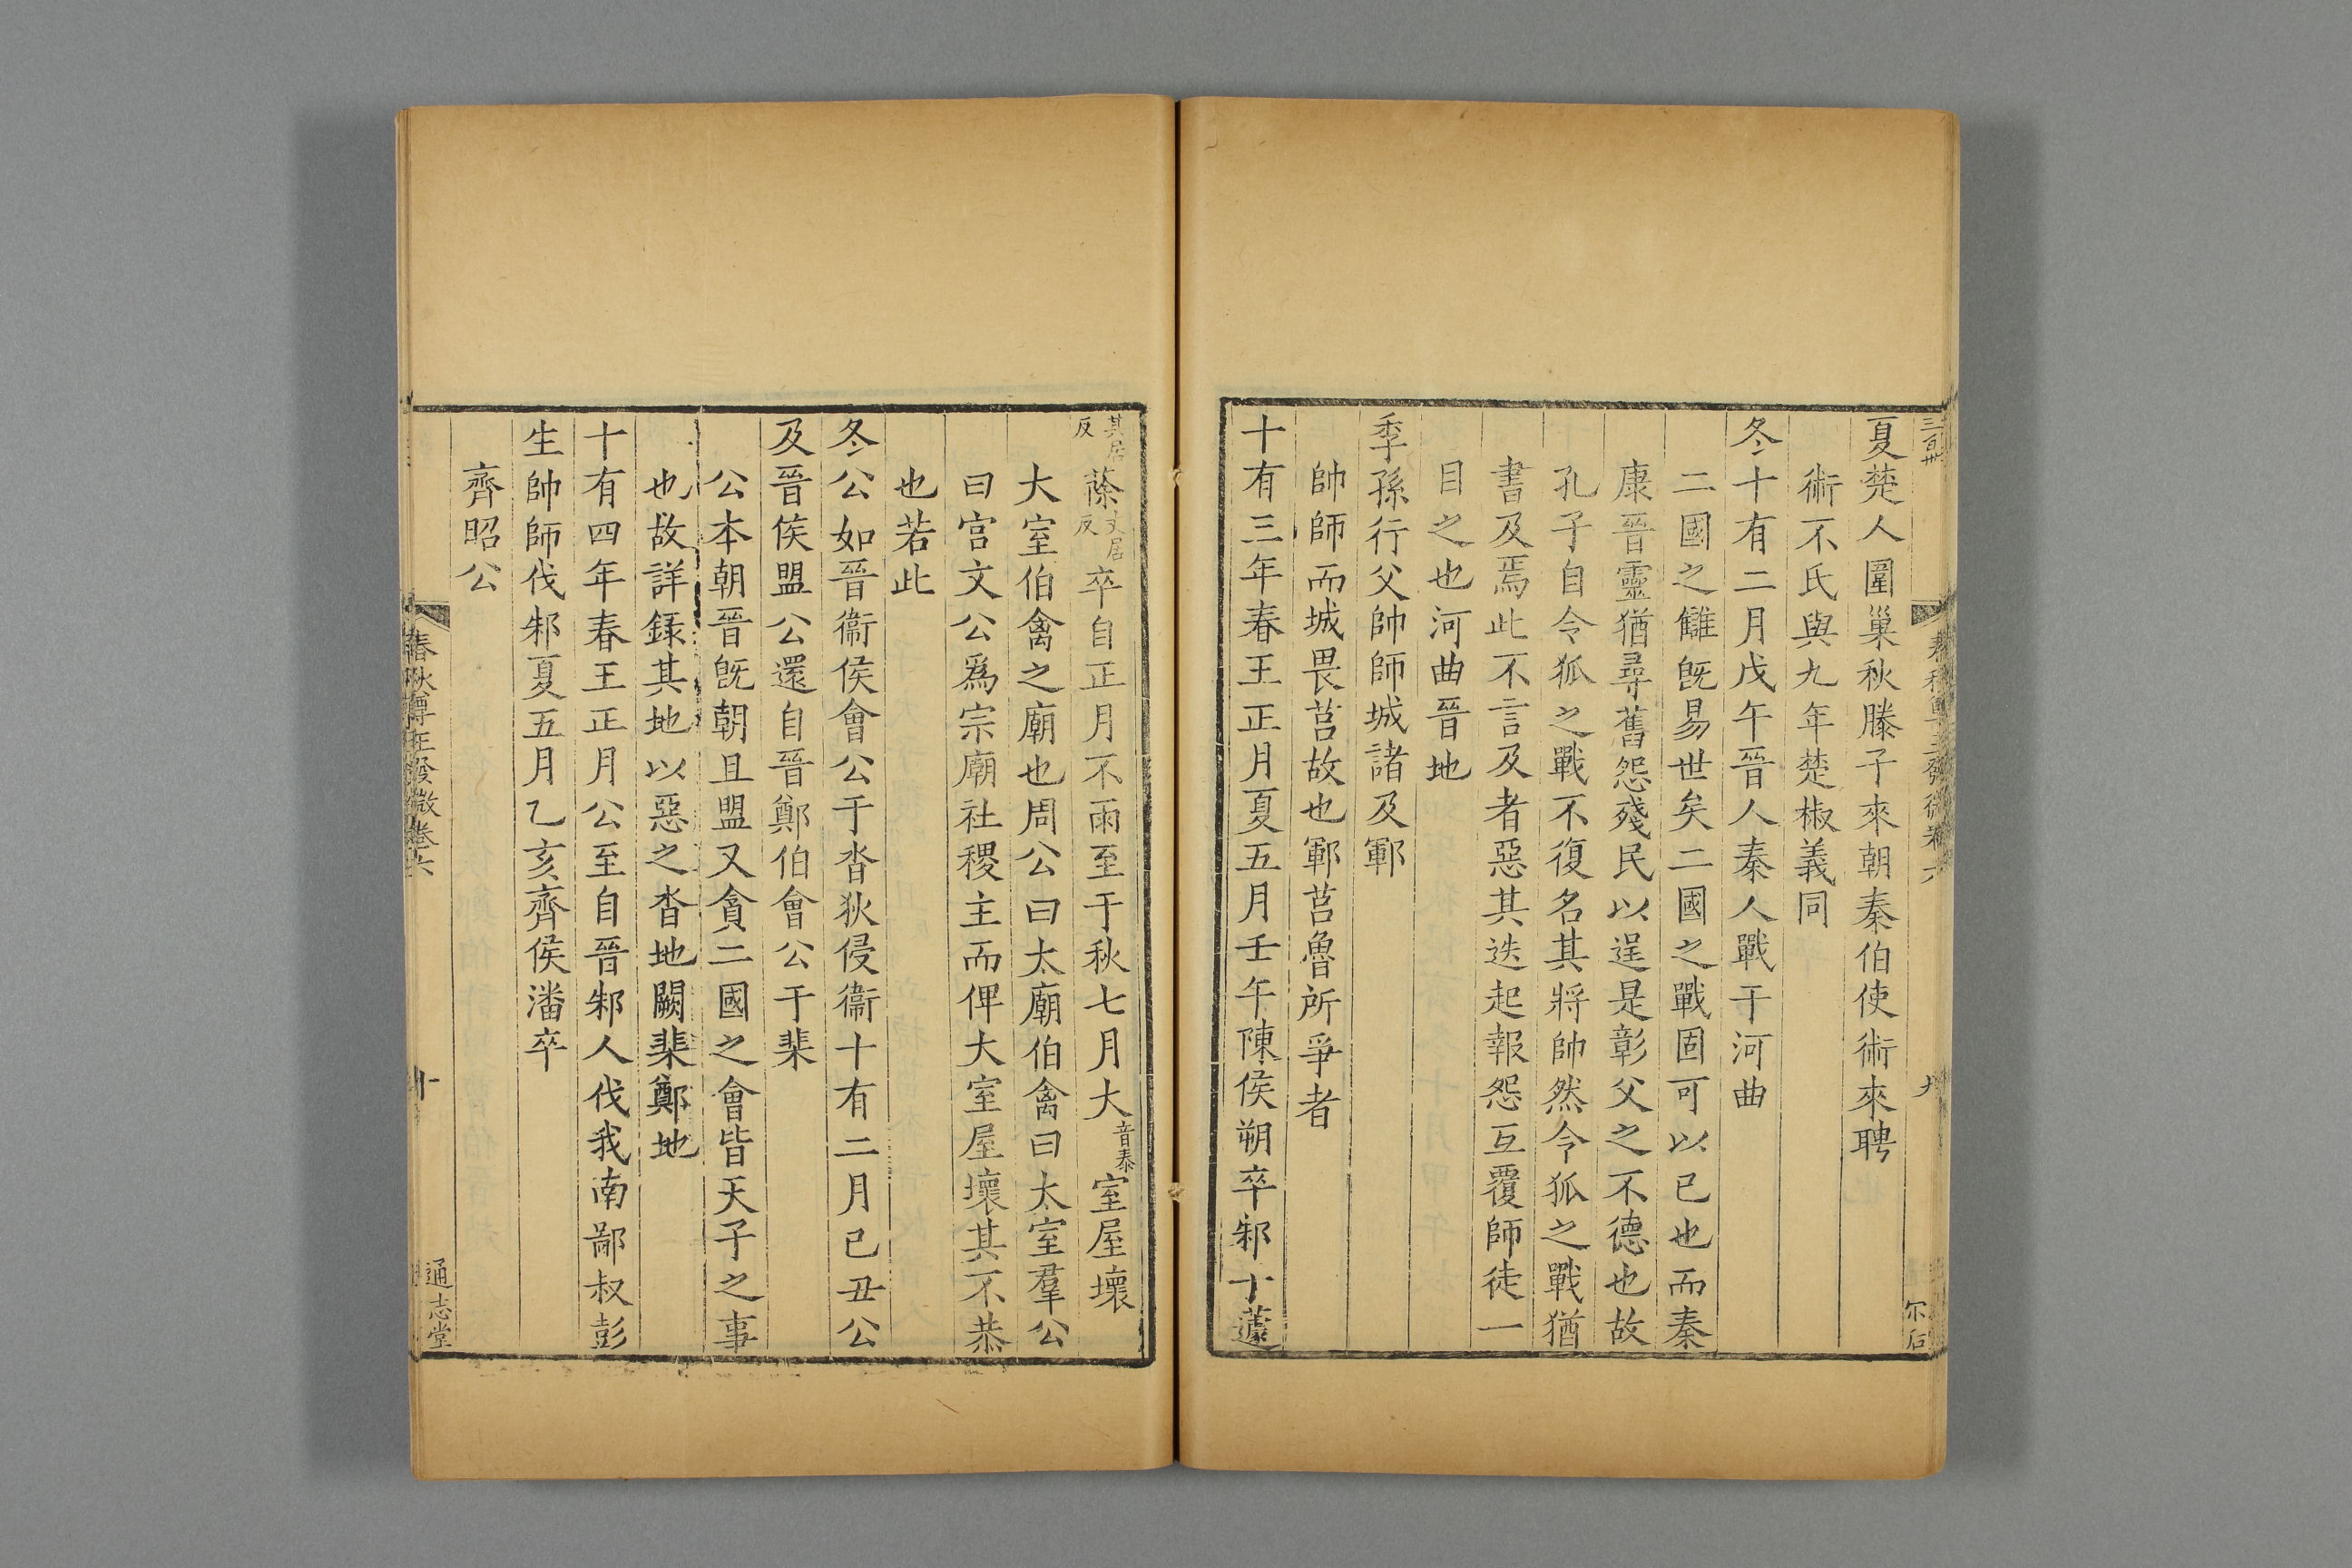 夏楚人圍巢秋滕子來朝秦伯使術來聘
術不氏與九年楚椒義同
冬十有二月戊午晉人秦人戰于河曲
二國之讎旣易世矣二國之戰固可以已也而秦
康晉靈猶尋舊怨殘民以逞是彰父之不德也故
孔子自令狐之戰不復名其將帥然令狐之戰猶
書及焉此不言及者惡其迭起報怨互覆師徒一
目之也河曲晉地
季孫行父帥師城諸及鄆
帥師而城畏莒故也鄆莒魯所爭者
十有三年春王正月夏五月壬午陳侯朔卒邾子蘧
其居反蒢丈居反卒自正月不雨至于秋七月大音泰室屋壞
大室伯禽之廟也周公曰太廟伯禽曰太室羣公
曰宮文公爲宗廟社稷主而俾大室屋壞其不恭
也若此
冬公如晉衞侯會公于沓狄侵衞十有二月己丑公
及晉侯盟公還自晉鄭伯會公于棐
公本朝晉旣朝且盟又貪二國之會皆天子之事
也故詳錄其地以惡之沓地闕棐鄭地
十有四年春王正月公至自晉邾人伐我南鄙叔彭
生帥師伐邾夏五月乙亥齊侯潘卒
齊昭公
春秋尊王發微卷六
十
通志堂